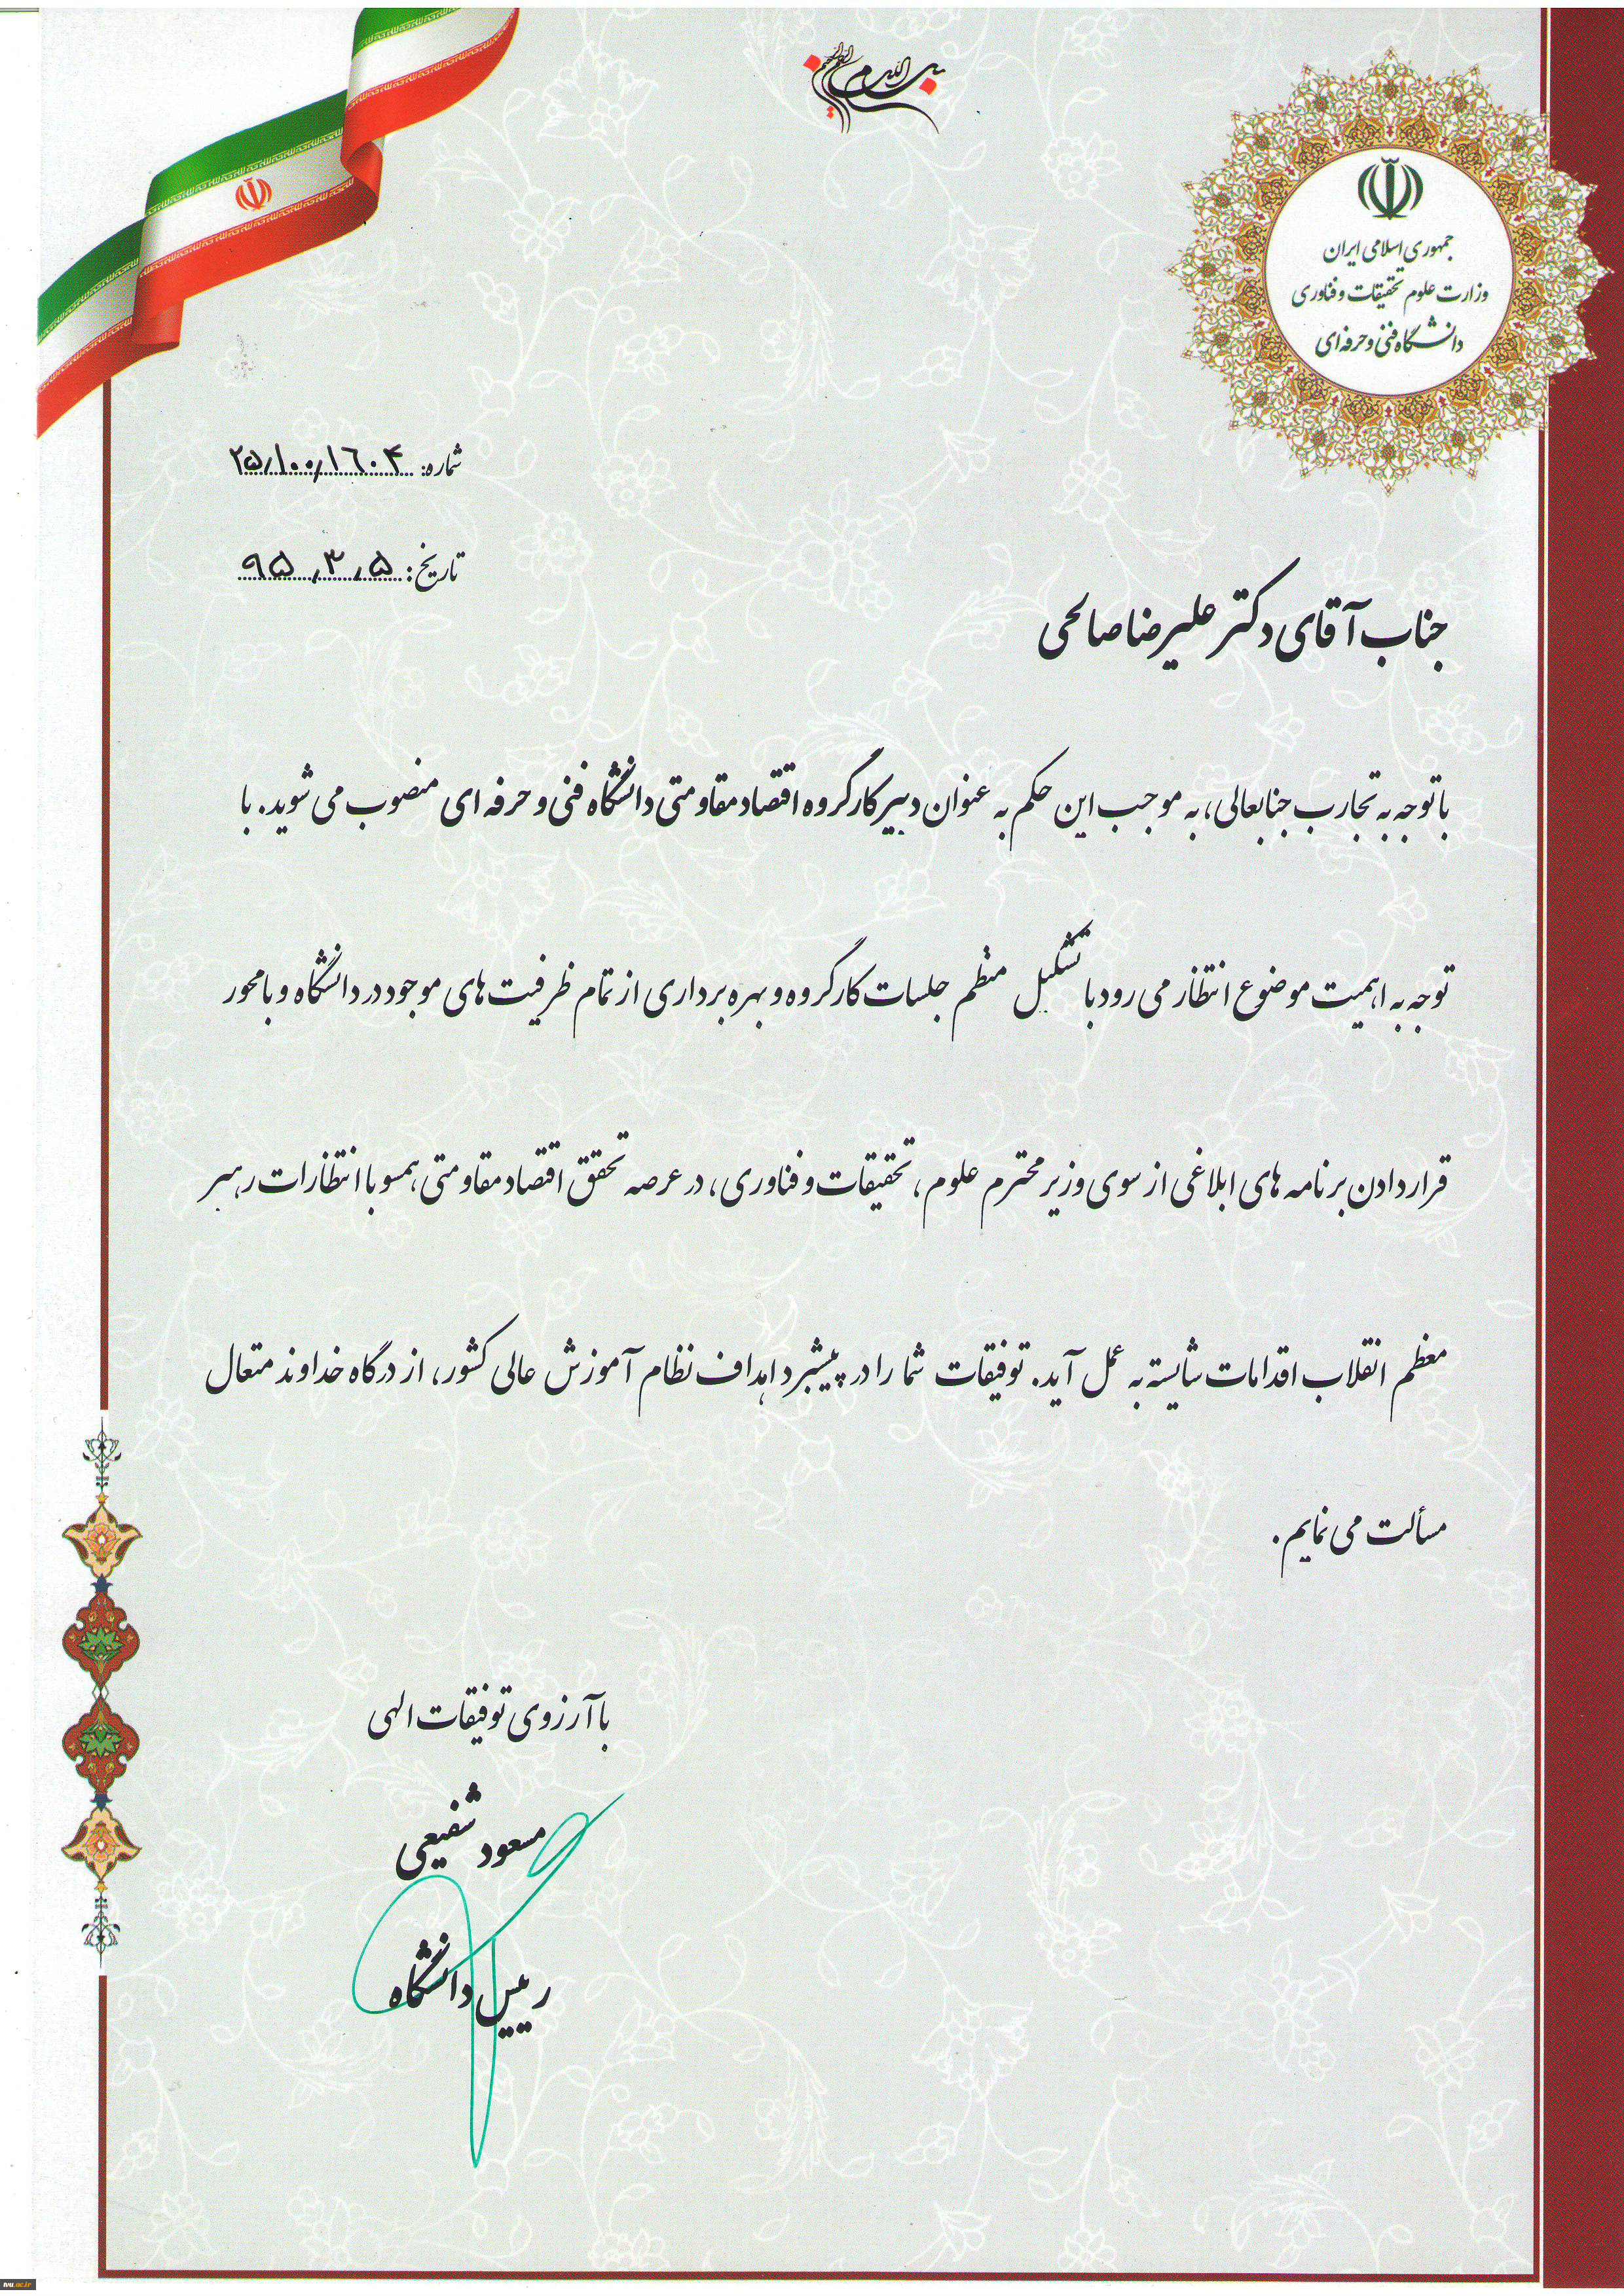 بسم الله الرحمن الرحیم
جمهوری اسلامی ایران
وزارت علوم تحقیقات و فناوری
دانشگاه فنی و حرفه ای
شماره: ۲۵/۱۰۰/۱۶۰۴
تاریخ: ۹۵/۳/۵
جناب آقای دکتر علیرضا صالحی
با توجه به تجارب جنابعالی، به موجب این حکم به عنوان دبیر کارگروه اقتصاد مقاومتی دانشگاه فنی و حرفه ای منصوب می شوید. با
توجه به اهمیت موضوع انتظار می رود با تشکیل منظم جلسات کارگروه و بهره برداری از تمام ظرفیت های موجود در دانشگاه و با محور
قرار دادن برنامه های ابلاغی از سوی وزیر محترم علوم، تحقیقات و فناوری، در عرصه تحقق اقتصاد مقاومتی، همسو با انتظارات رهبر
معظم انقلاب اقدامات شایسته به عمل آید. توفیقات شما را در پیشبرد اهداف نظام آموزش عالی کشور، از درگاه خداوند متعال
مسألت می نمایم.
با آرزوی توفیقات الهی
مسعود شفیعی
رییس دانشگاه
tvu.ac.ir